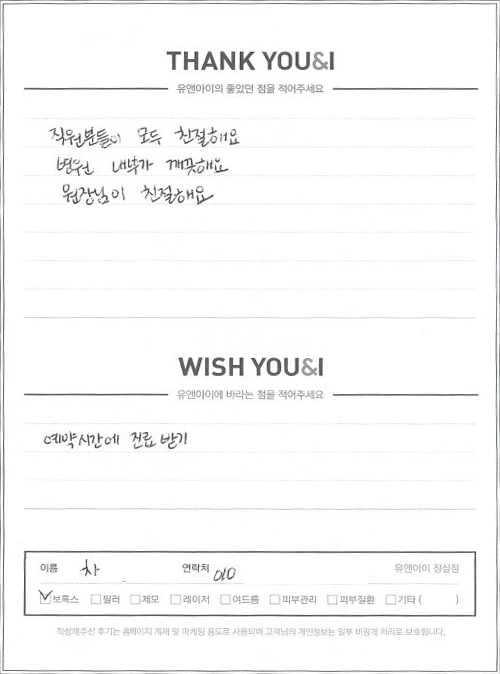 THANK YOU&I
유앤아이의 좋았던 점을 적어주세요
직원분들이 모두 친절해요
병원 내부가 깨끗해요
원장님이 친절해요
WISH YOU&I
유앤아이에 바라는 점을 적어주세요
예약시간에 진료 받기
이름 차 연락처 010 유앤아이 잠실점
보톡스 필러 제모 레이저 여드름 피부관리 피부질환 기타 ( )
작성해주신 후기는 홈페이지 게재 및 마케팅 용도로 사용되며 고객님의 개인정보는 일부 비공개 처리로 보호됩니다.